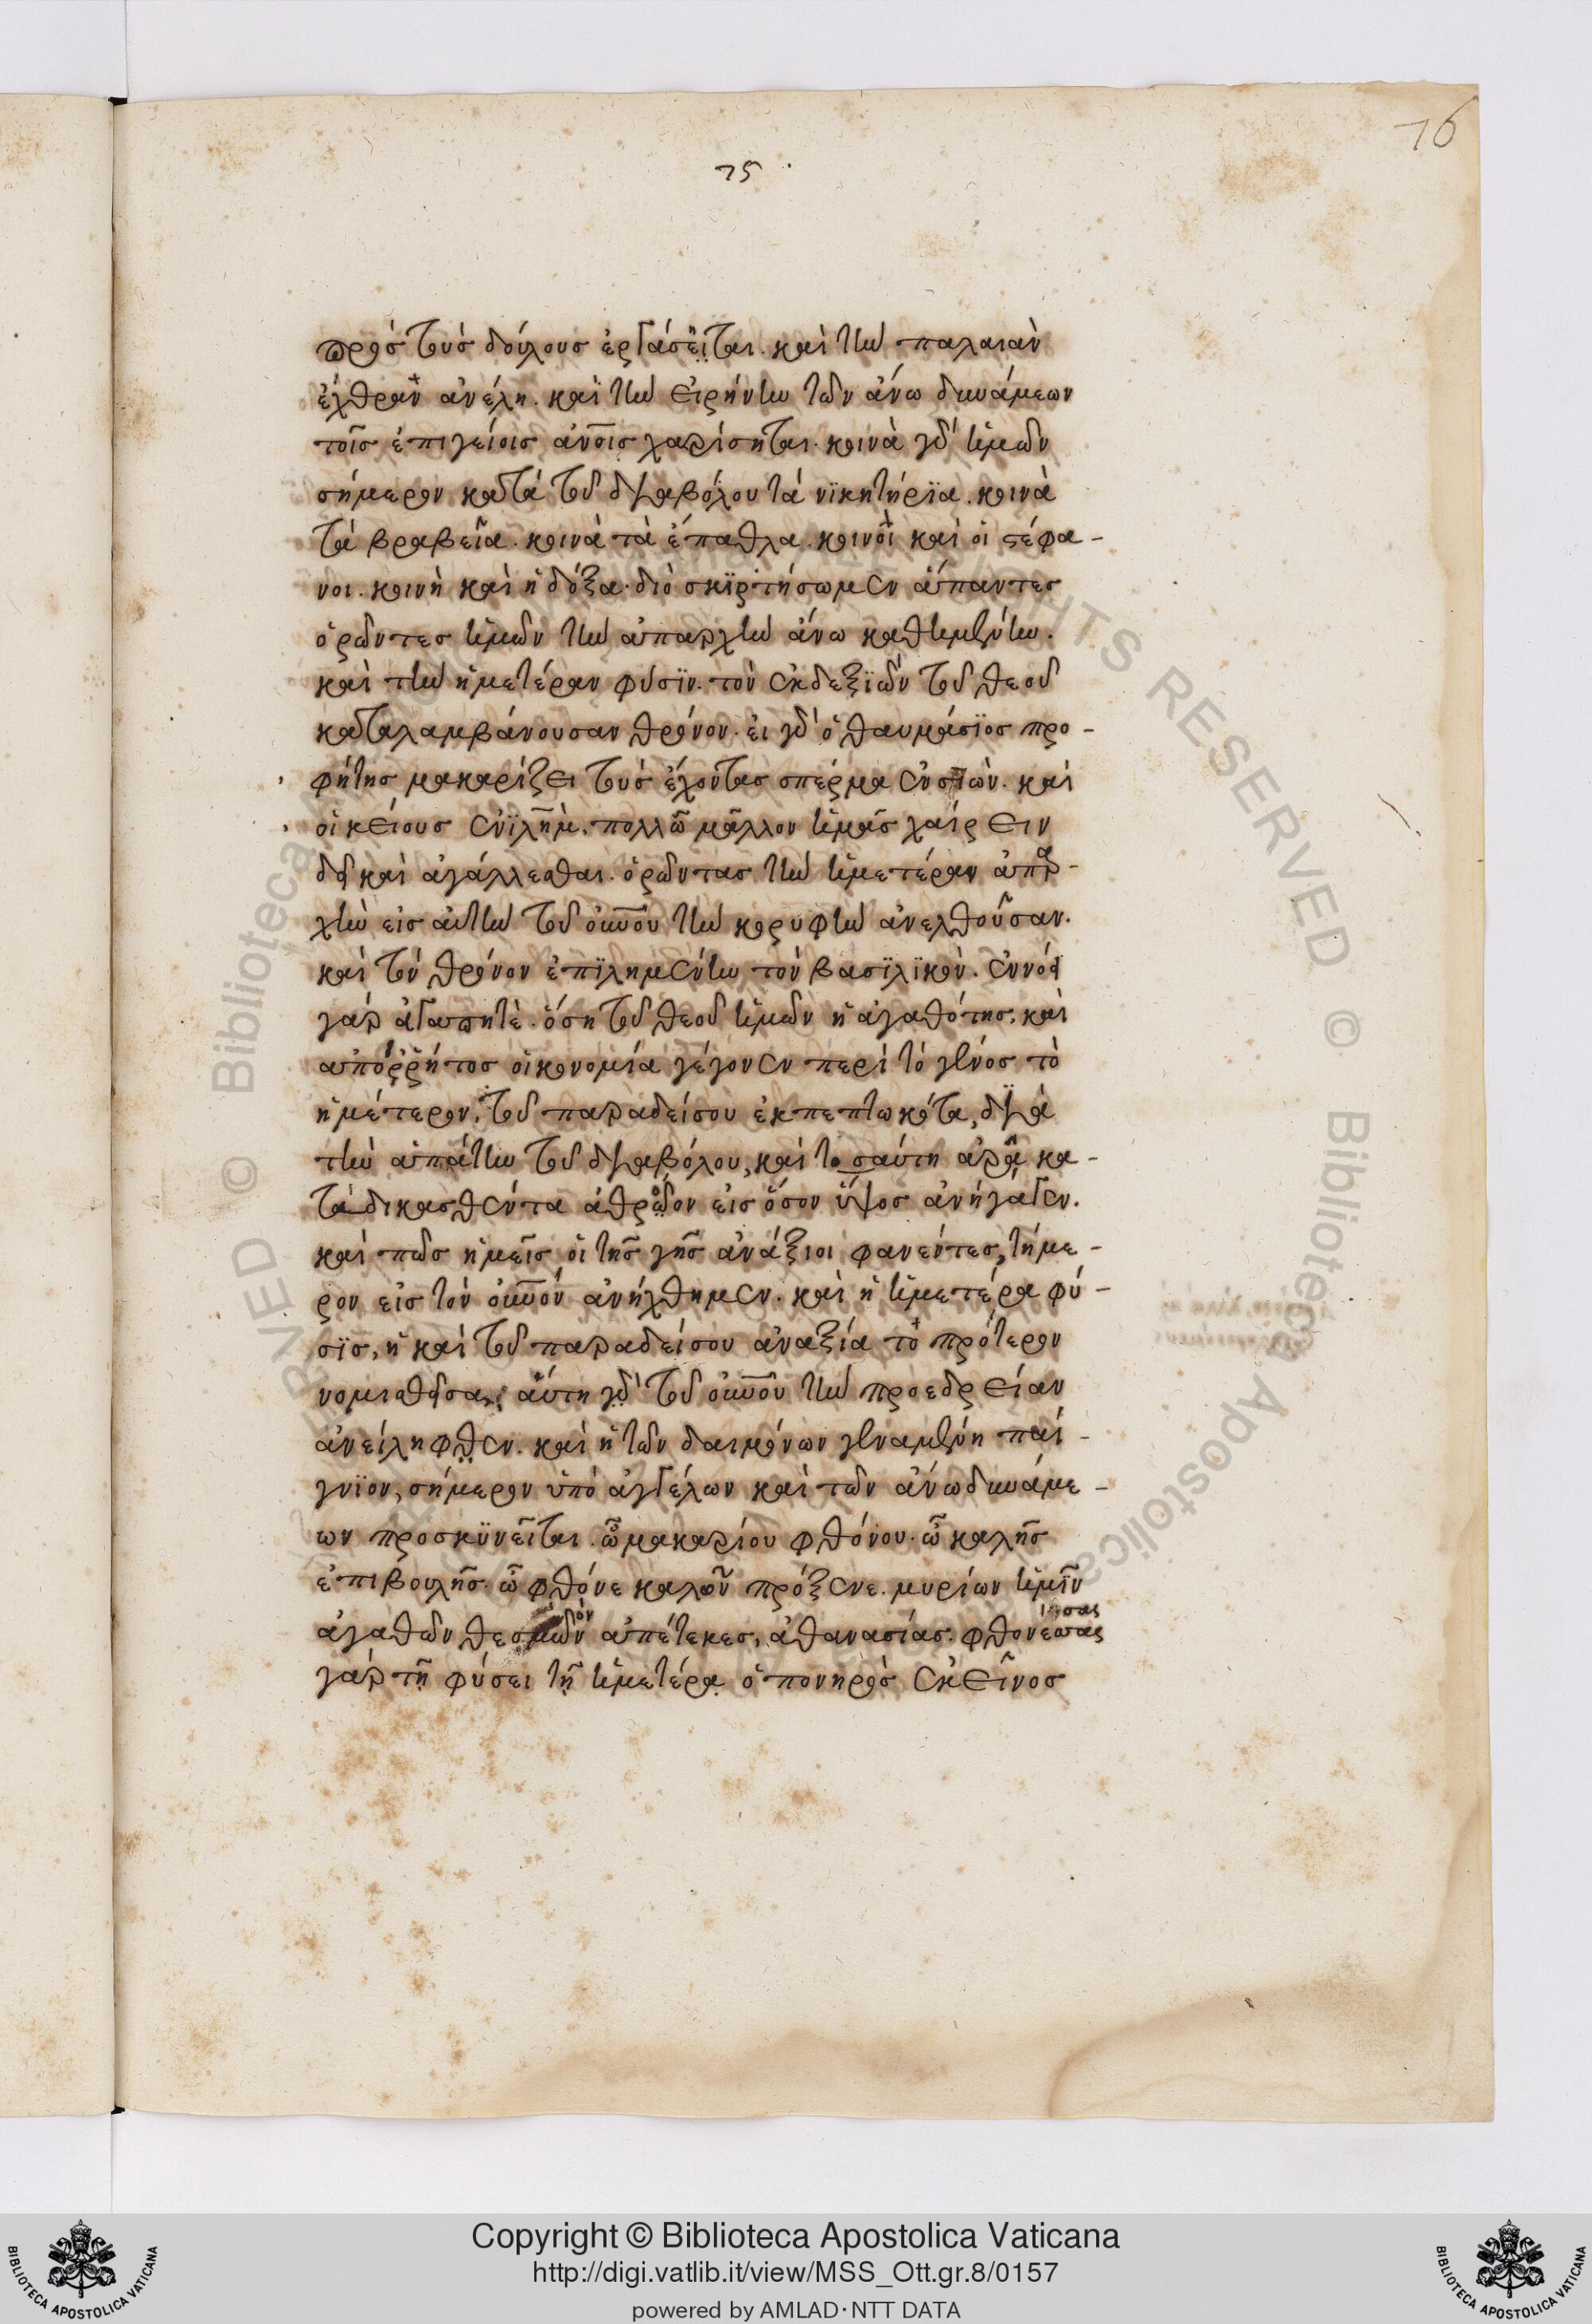 76
75
πρὸς τοὺς δούλους ἐργάσειται. καὶ τὴν παλαιὰν
ἔχθραν ἀνέλη. καὶ τὴν εἰρήνην τῶν ἄνω δυνάμεων
τοῖς ἐπιγείοις ἀνοις χαρίσηται. κοινὰ γὰρ ἡμῶν
σήμερον κατὰ τοῦ διαβόλου τὰ νϊκητήρϊα. κοινὰ
τὰ βραβεῖα. κοινὰ τὰ ἔπαθλα. κοινοὶ καὶ οἱ στέφα-
νοι. κοινὴ καὶ ἡ δόξα. διὸ σκϊρτήσωμεν ἅπαντες
ὁρῶντες ἡμῶν τὴν ἀπαρχὴν ἄνω καθημένην.
καὶ τὴν ἡμετέραν φύσϊν. τὸν ἐκ δεξϊῶν τοῦ θεοῦ
καταλαμβάνουσαν θρόνον. εἰ γὰρ ὁ θαυμάσϊος προ-
φήτης μακαρίζει τοὺς ἔχοντας σπέρμα ἐν σιών. καὶ
οἰκείους ἐν ϊλημ. πολλῶ μᾶλλον ἡμᾶς χαίρειν
δεῖ καὶ ἀγάλλεσθαι. ὁρῶντας τὴν ἡμετέραν ἀπαρ-
χὴν εἰς αὐτὴν τοῦ οὐνοῦ τὴν κορυφὴν ἀνελθοῦσαν.
καὶ τὸν θρόνον ἐπϊλημένην τὸν βασϊλϊκὸν. ἐννόει
γὰρ ἀγαπητὲ. ὅση τοῦ θεοῦ ἡμῶν ἡ ἀγαθότης. καὶ
ἀπόρρήτος οἰκονομία γέγονεν περὶ τὸ γένος τὸ
ἡμέτερον. τοῦ παραδείσου ἐκπεπτωκότα, διὰ
τὴν ἀπάτην τοῦ διαβόλου, καὶ τοσαύτη ἀρᾶ κα-
ταδικασθέντα ἀθρόον εἰς ὅσον ὕψος ἀνήγαγεν.
καὶ πῶς ἡμεῖς οἱ τῆς γῆς ἀνάξιοι φανέντες, τήμε-
ρον εἰς τὸν οὐνὸν ἀνήχθημεν. καὶ ἡ ἡμετέρα φύ-
σϊς, ἡ καὶ τοῦ παραδείσου ἀναξία τὸ πρότερον
νομισθεῖσα, αὕτη γὰρ τοῦ οὐνοῦ τὴν προεδρείαν
ἀνείληφθεν. καὶ ἡ τῶν δαιμόνων γεναμένη παί-
γνϊον, σήμερον ὑπὸ ἀγγέλων καὶ τῶν ἄνω δυνάμε-
ων προσκϋνεῖται. ὦ μακαρίου φθόνου. ὦ καλῆς
ἐπιβουλῆς. ὦ φθόνε καλῶν πρόξενε. μυρίων ἡμῖν
ἀγαθῶν θεσμῶν ἀπέτεκες, ἀθανασίας. φθονέσας
γὰρ τῆ φύσει τῆ ἡμετέρα ὁ πονηρὸς ἐκεῖνος
Copyright © Biblioteca Apostolica Vaticana
http://digi.vatlib.it/view/MSS_Ott.gr.8/0157
powered by AMLAD·NTT DATA